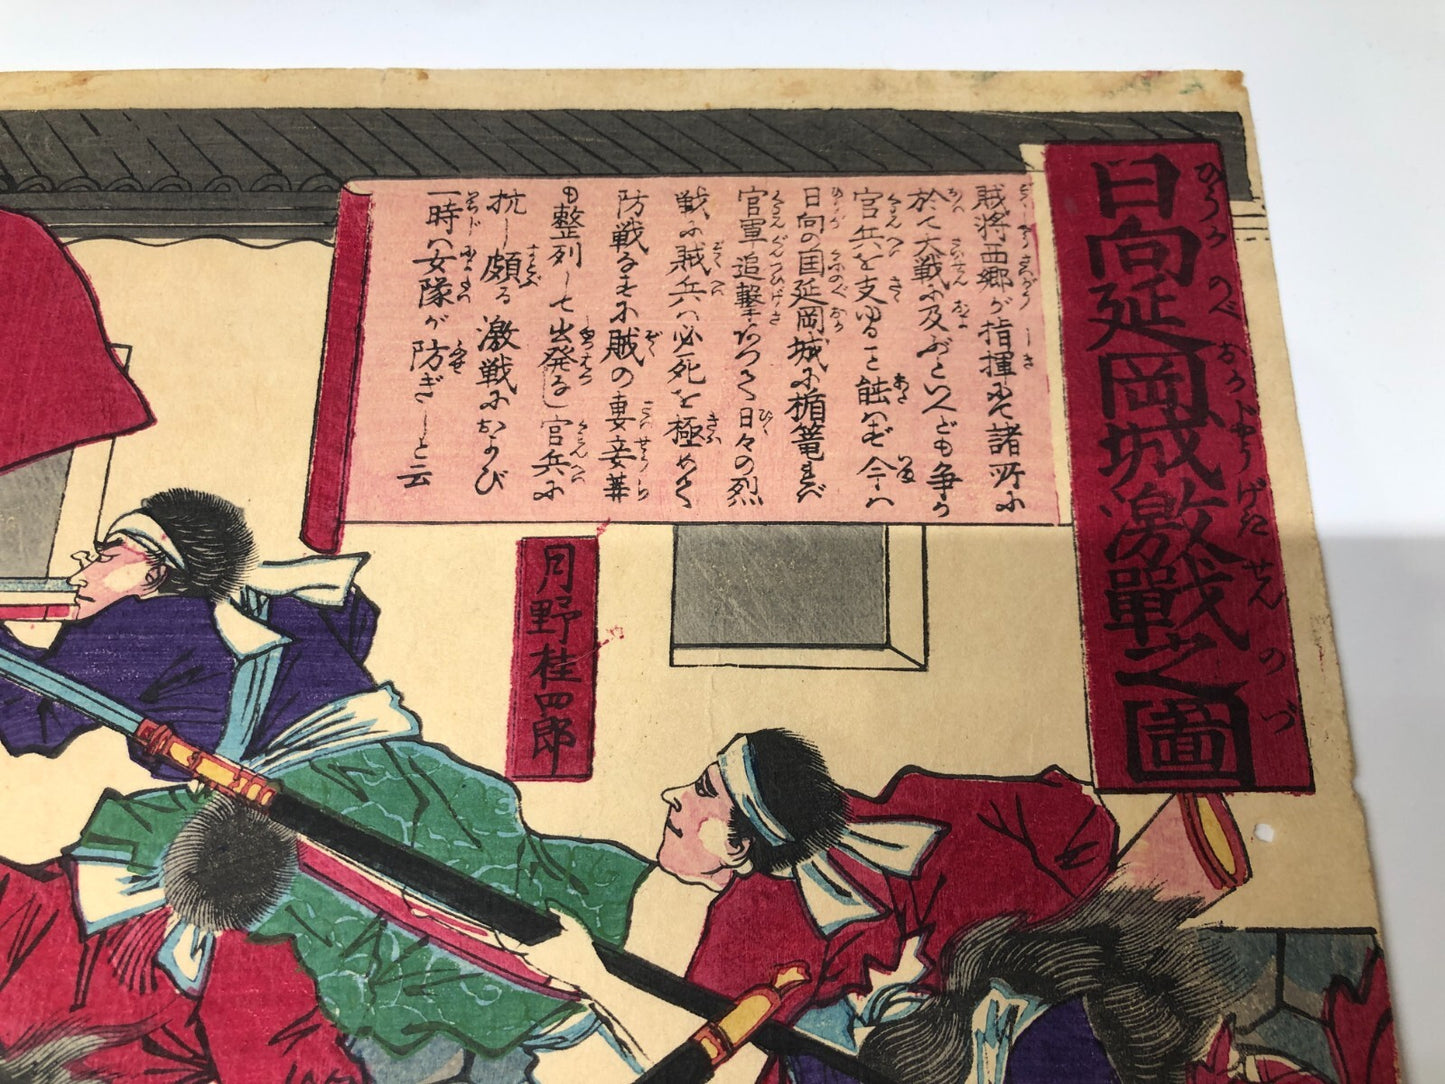 日向延岡城激戰之圖
ひうがのべおかじようげきせんのづ
賊将西郷が指揮にて諸所に
於て大戦に及ぶといへども争か
官兵を支ゆること能はず今は
日向の国延岡城に楯篭れば
官軍追撃なしつゝ日々の烈
戦に賊兵は必死を極めてく
防戦るすに賊の妻妾等
も整列して出発なし官兵に
抗し頗る激戦におよび
一時は女隊が防ぎしと云
月野桂四郎